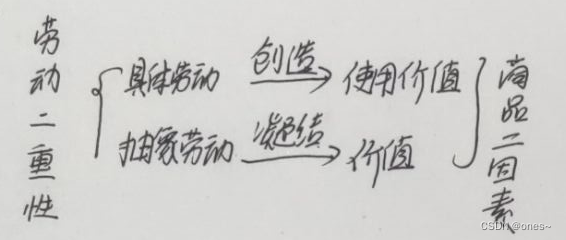 劳动二重性
具体劳动 创造 使用价值
抽象劳动 凝结 价值
商品二因素
CSDN @ones~